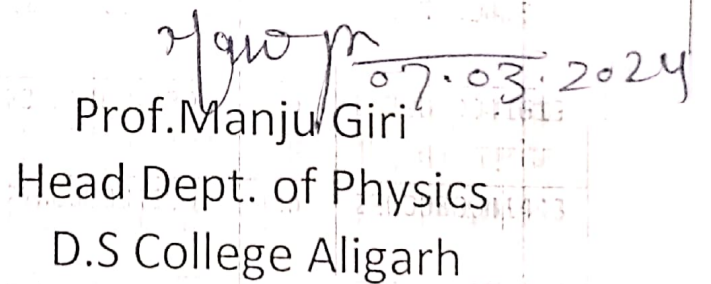 07.03.2024
Prof.Manju Giri
Head Dept. of Physics
D.S College Aligarh